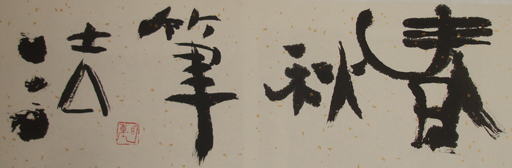 春秋筆法